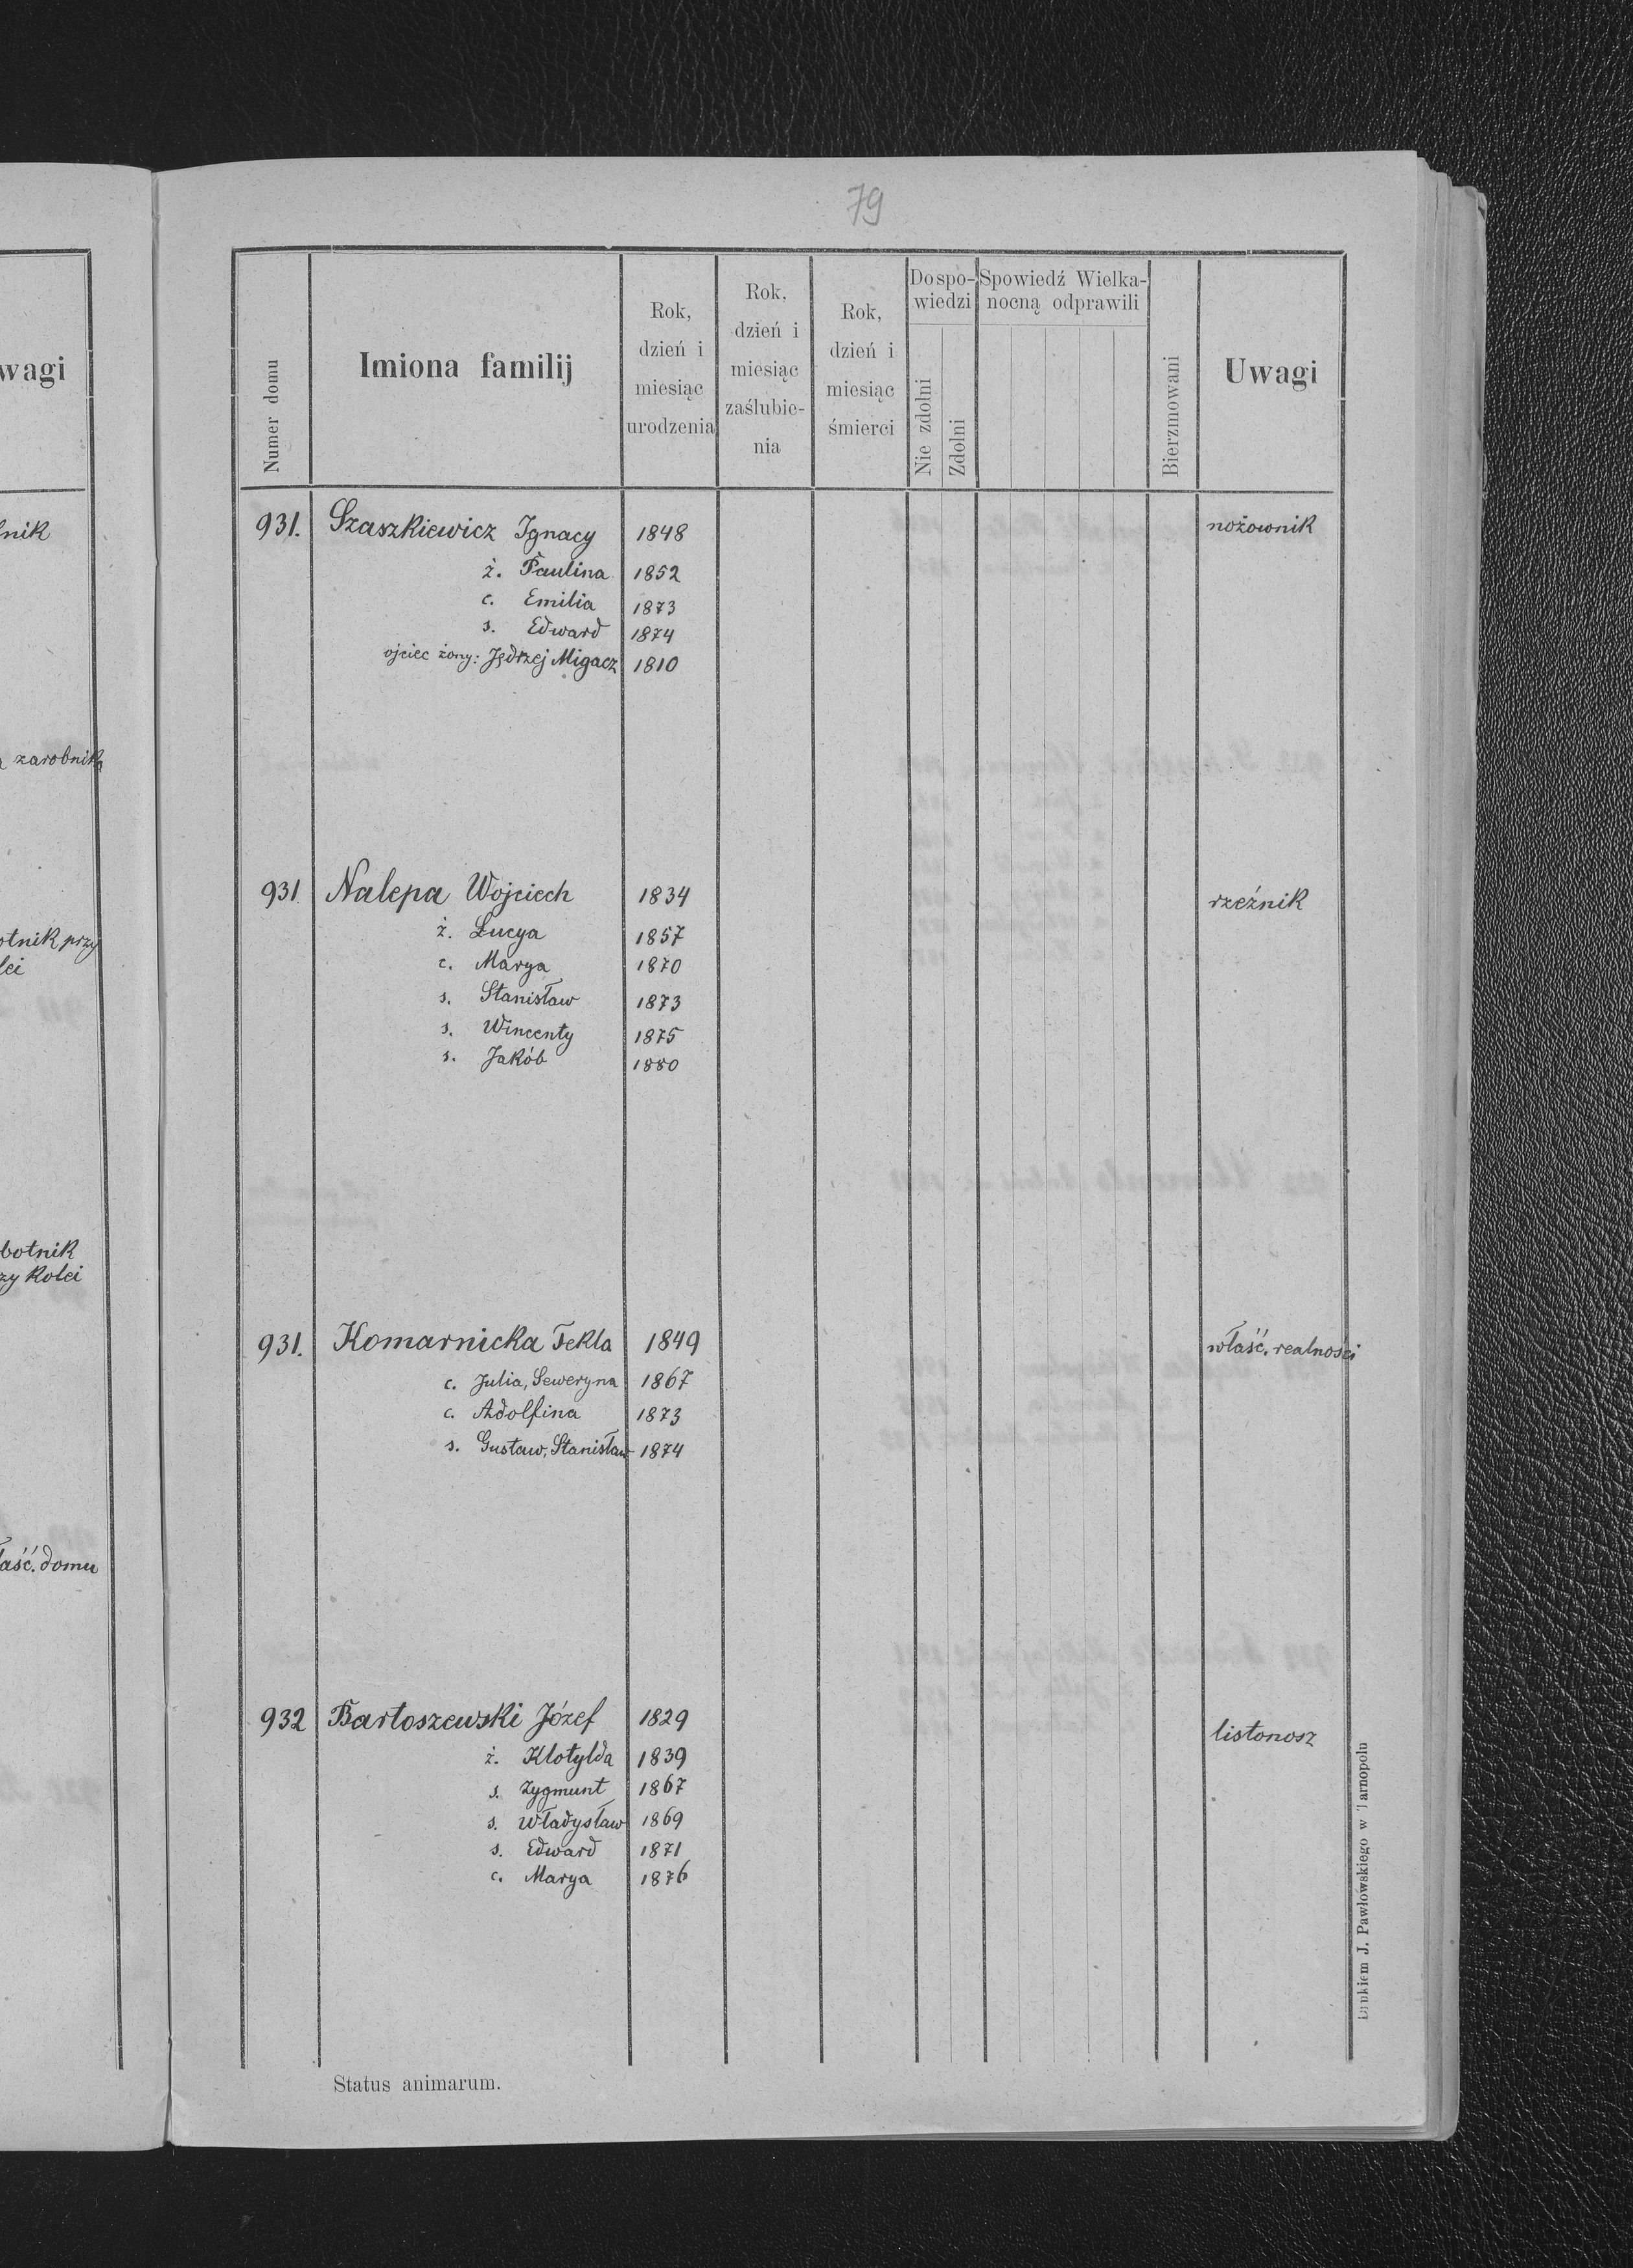 wagi
nik
zarobnika
otnik przy
lei
botnik
zy kolei
łaść. domu
79
Numer domu
Imiona familij
Rok,
dzień i
miesiąc
urodzenia
Rok,
dzień i
miesiąc
zaślubie-
nia
Rok,
dzień i
miesiąc
śmierci
Do spo-
wiedzi
Nie zdolni
Zdolni
Spowiedź Wielka-
nocną odprawili
Bierzmowani
Uwagi
931. Szaszkiewicz Ignacy 1848 nożownik
ż. Paulina 1852
c. Emilia 1873
s. Edward 1874
ojciec żony: Jędrzej Migacz 1810
931 Nalepa Wojciech 1834 rzeźnik
ż. Łucya 1857
c. Marya 1870
s. Stanisław 1873
s. Wincenty 1875
s. Jakób 1880
931. Komarnicka Tekla 1849 właść. realności
c. Julia, Seweryna 1867
c. Adolfina 1873
s. Gustaw, Stanisław 1874
932 Bartoszewski Józef 1829 listonosz
ż. Klotylda 1839
s. Zygmunt 1867
s. Władysław 1869
s. Edward 1871
c. Marya 1876
Drukiem J. Pawłowskiego w Tarnopolu
Status animarum.